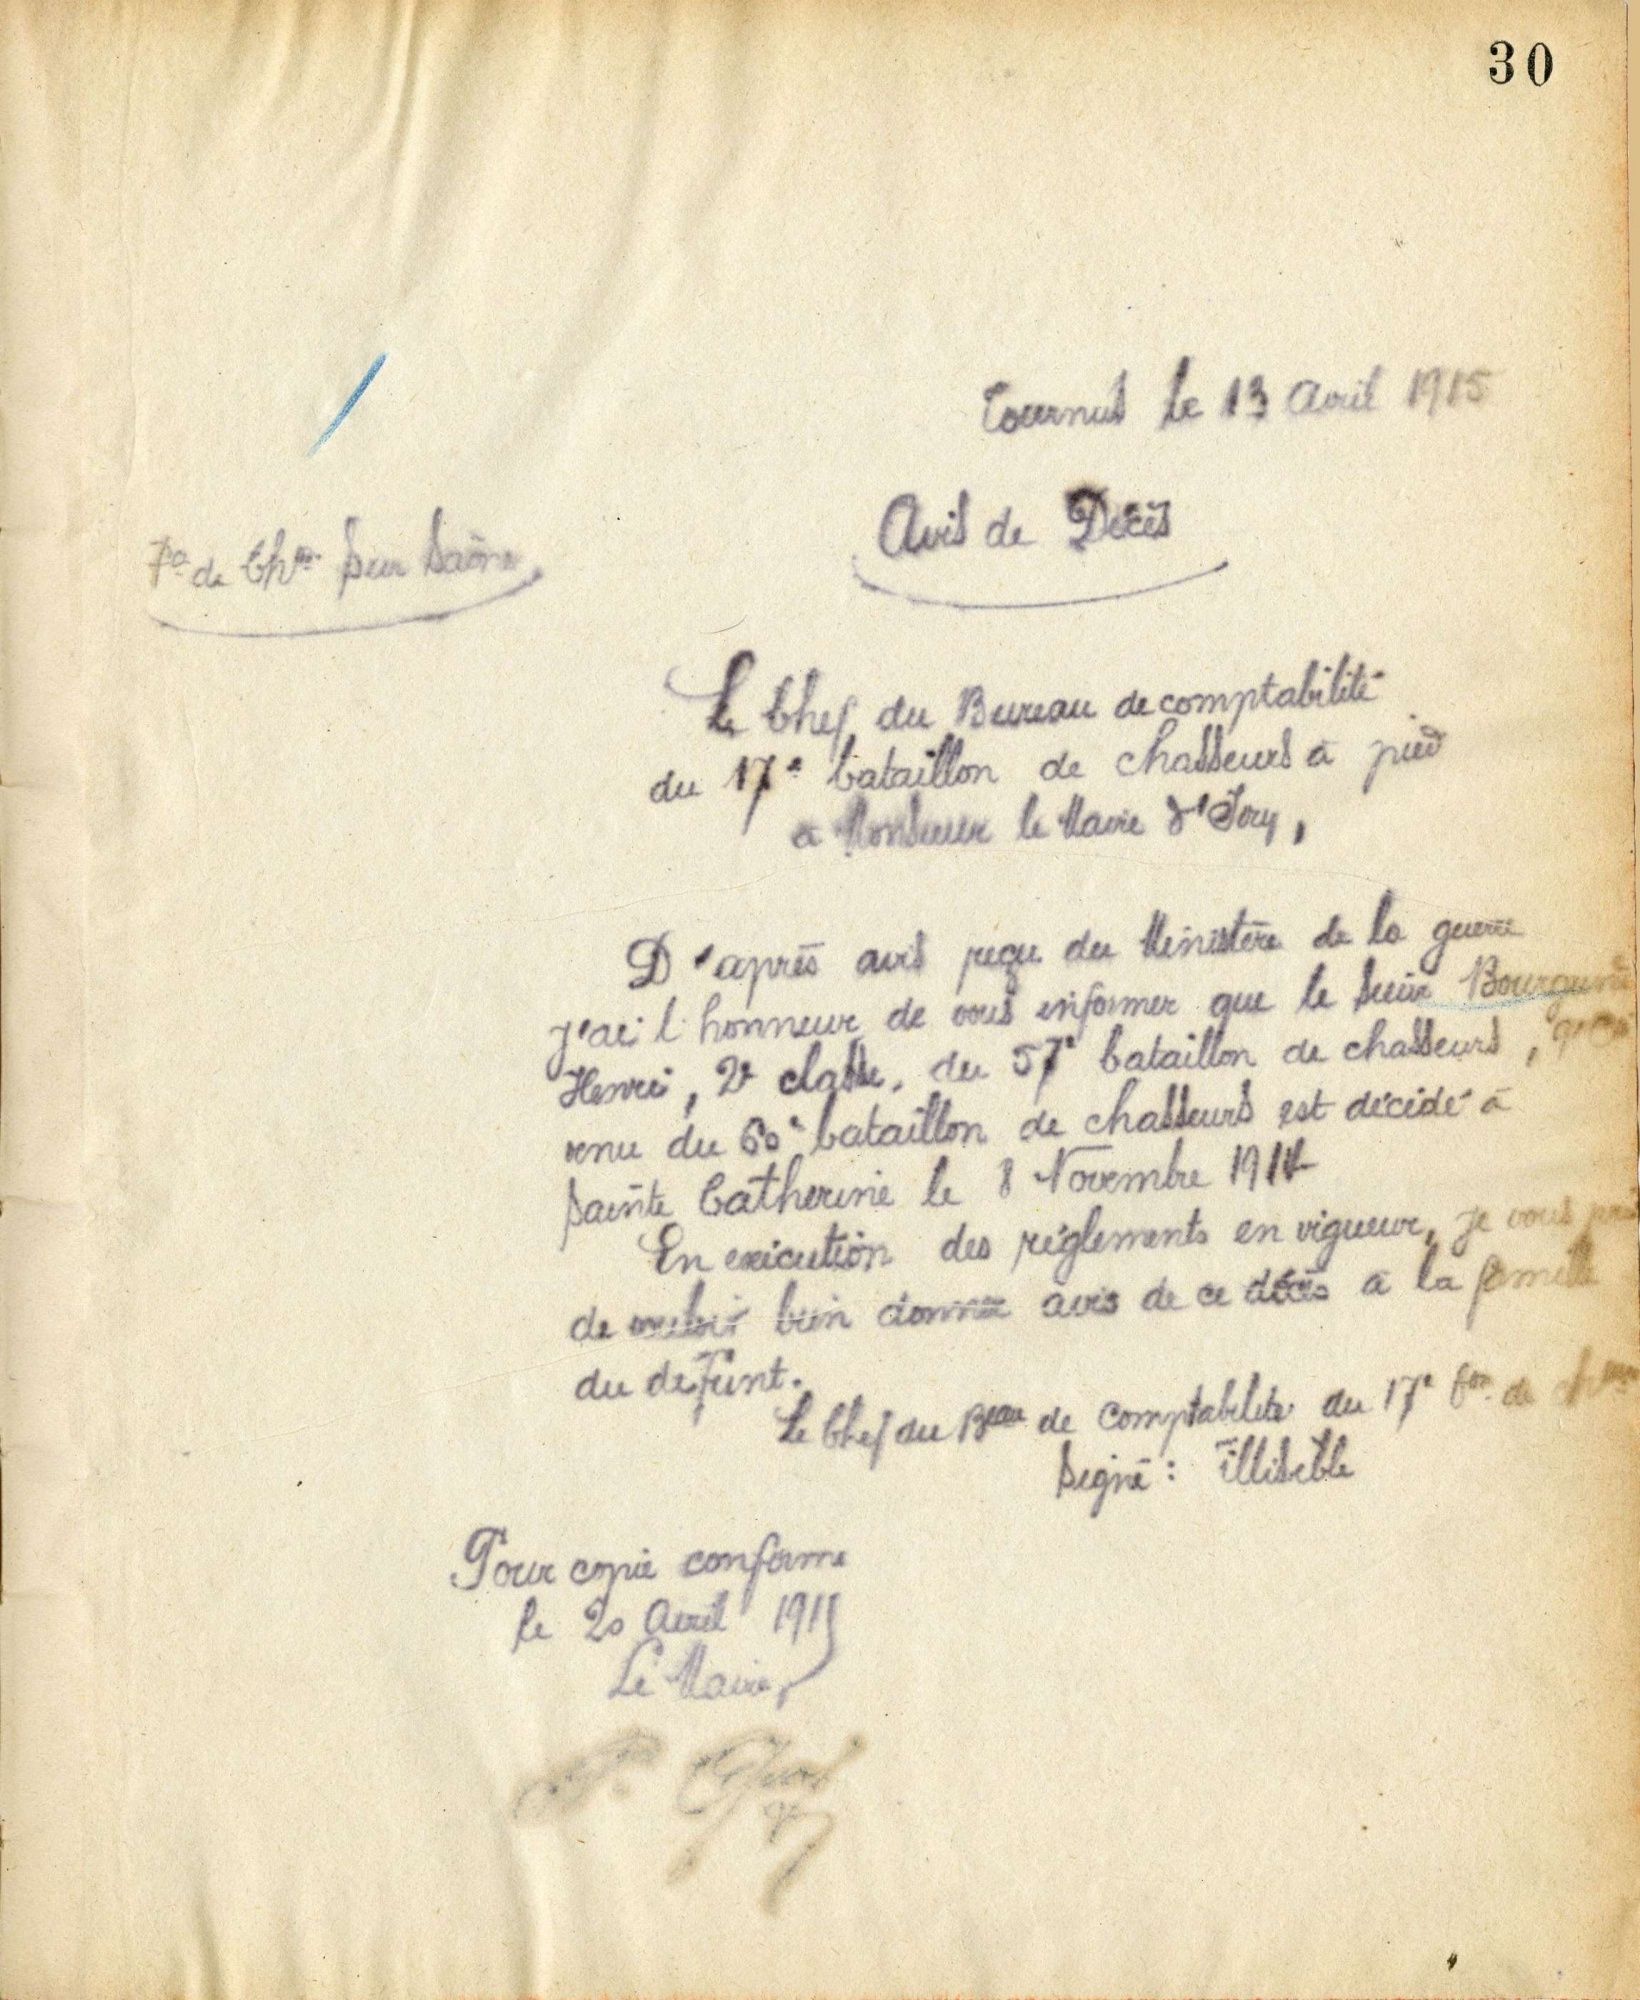 30
Tournus le 13 Avril 1915
Avis de Décès
de sur Saône
Le Chef du Bureau de comptabilité
du 17e bataillon de chasseurs à pied
à Monsieur le Maire d'Ivry,
D'après avis reçu du Ministère de la guerre
j'ai l'honneur de vous informer que le sieur
Henri, 2e classe, du 57e bataillon de chasseurs,
venu du 60e bataillon de chasseurs est décédé à
Sainte Catherine le 8 Novembre 1914
En exécution des réglements en vigueur, je vous prie
de vouloir bien donner avis de ce décès à la famille
du defunt.
Le Chef du Beau de Comptabilité du 17e Bon de
Signé : illisible
Pour copie conforme
le 20 Avril 1915
Le Maire,